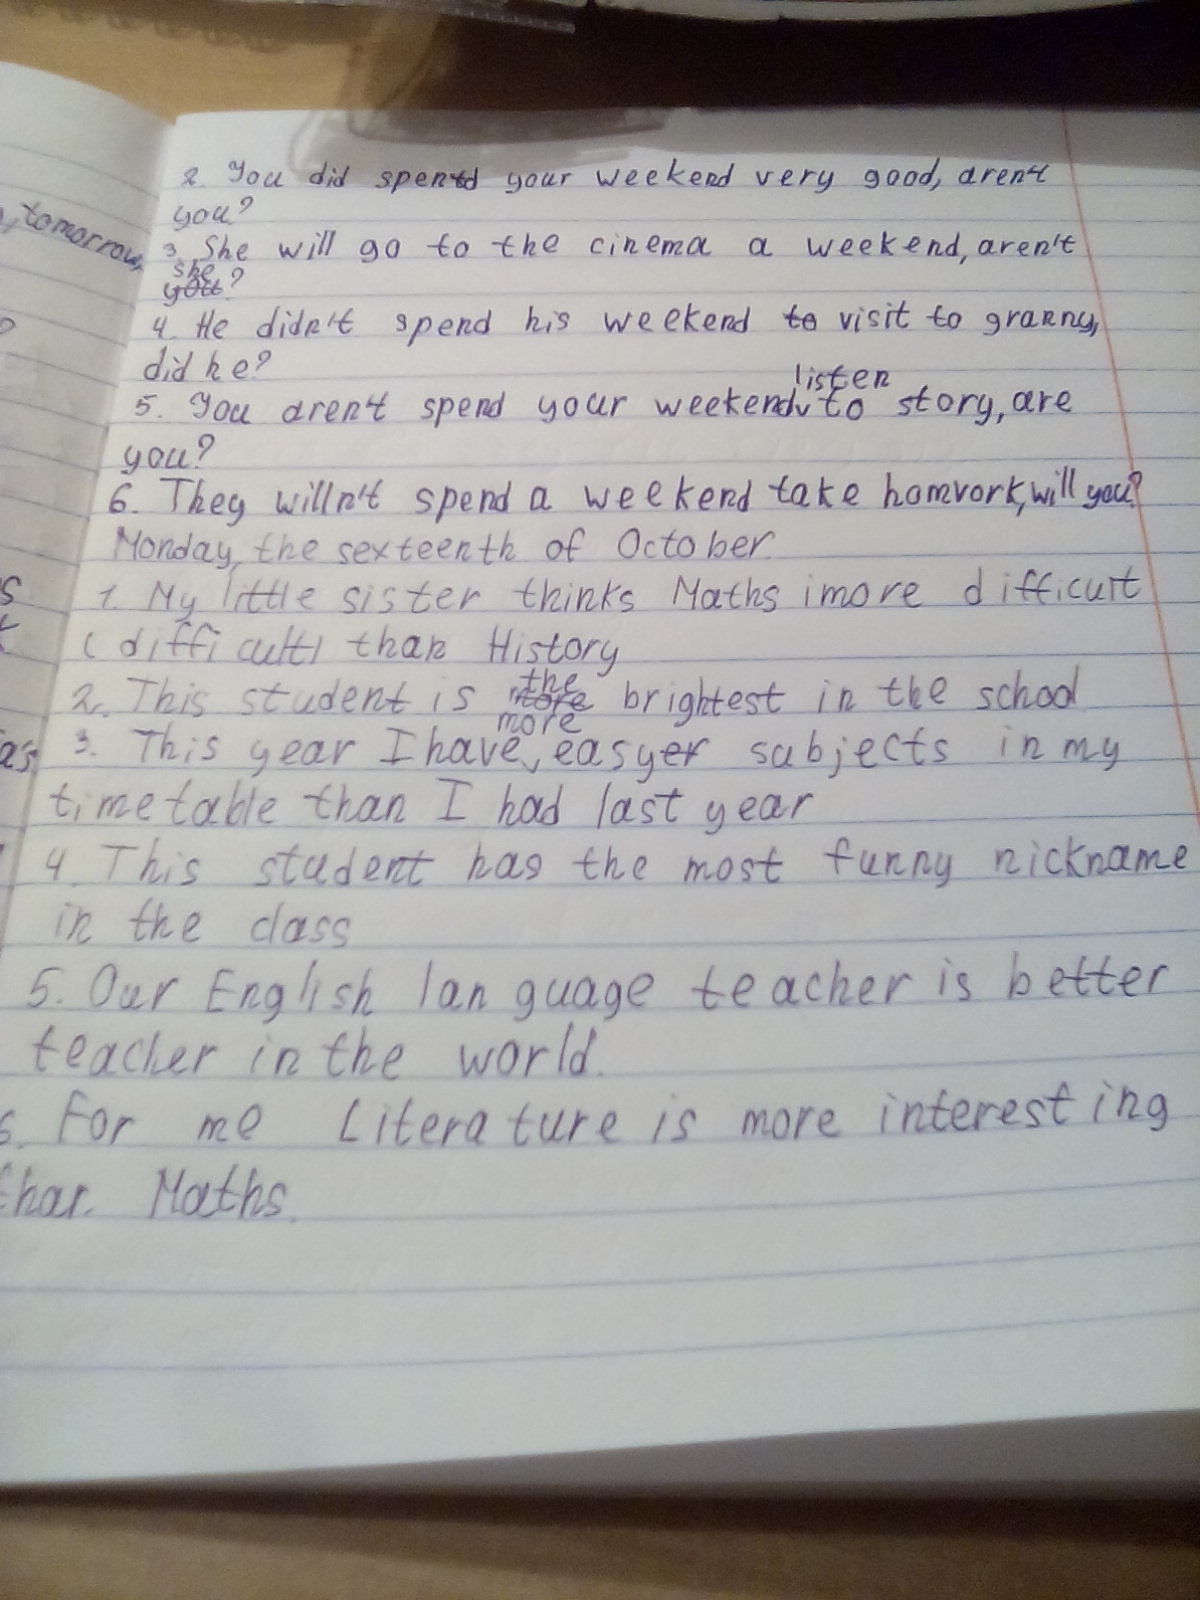 2. You did spend your weekend very good, aren't
you?
tomorrow,
3. She will go to the cinema a weekend, aren't
she
you?
4. He didn't spend his weekend to visit to granny,
did he?
listen
5. You aren't spend your weekend to story, are
you?
6. They willn't spend a weekend take homvork, will you?
Monday, the sexteenth of October.
1. My little sister thinks Maths is more difficult
(difficult) than History
the
2. This student is more brightest in the school
more
3. This year I have easyer subjects in my
timetable than I had last year
4. This student has the most funny nickname
in the class
5. Our English language teacher is better
teacher in the world.
6. For me Literature is more interesting
than Maths.